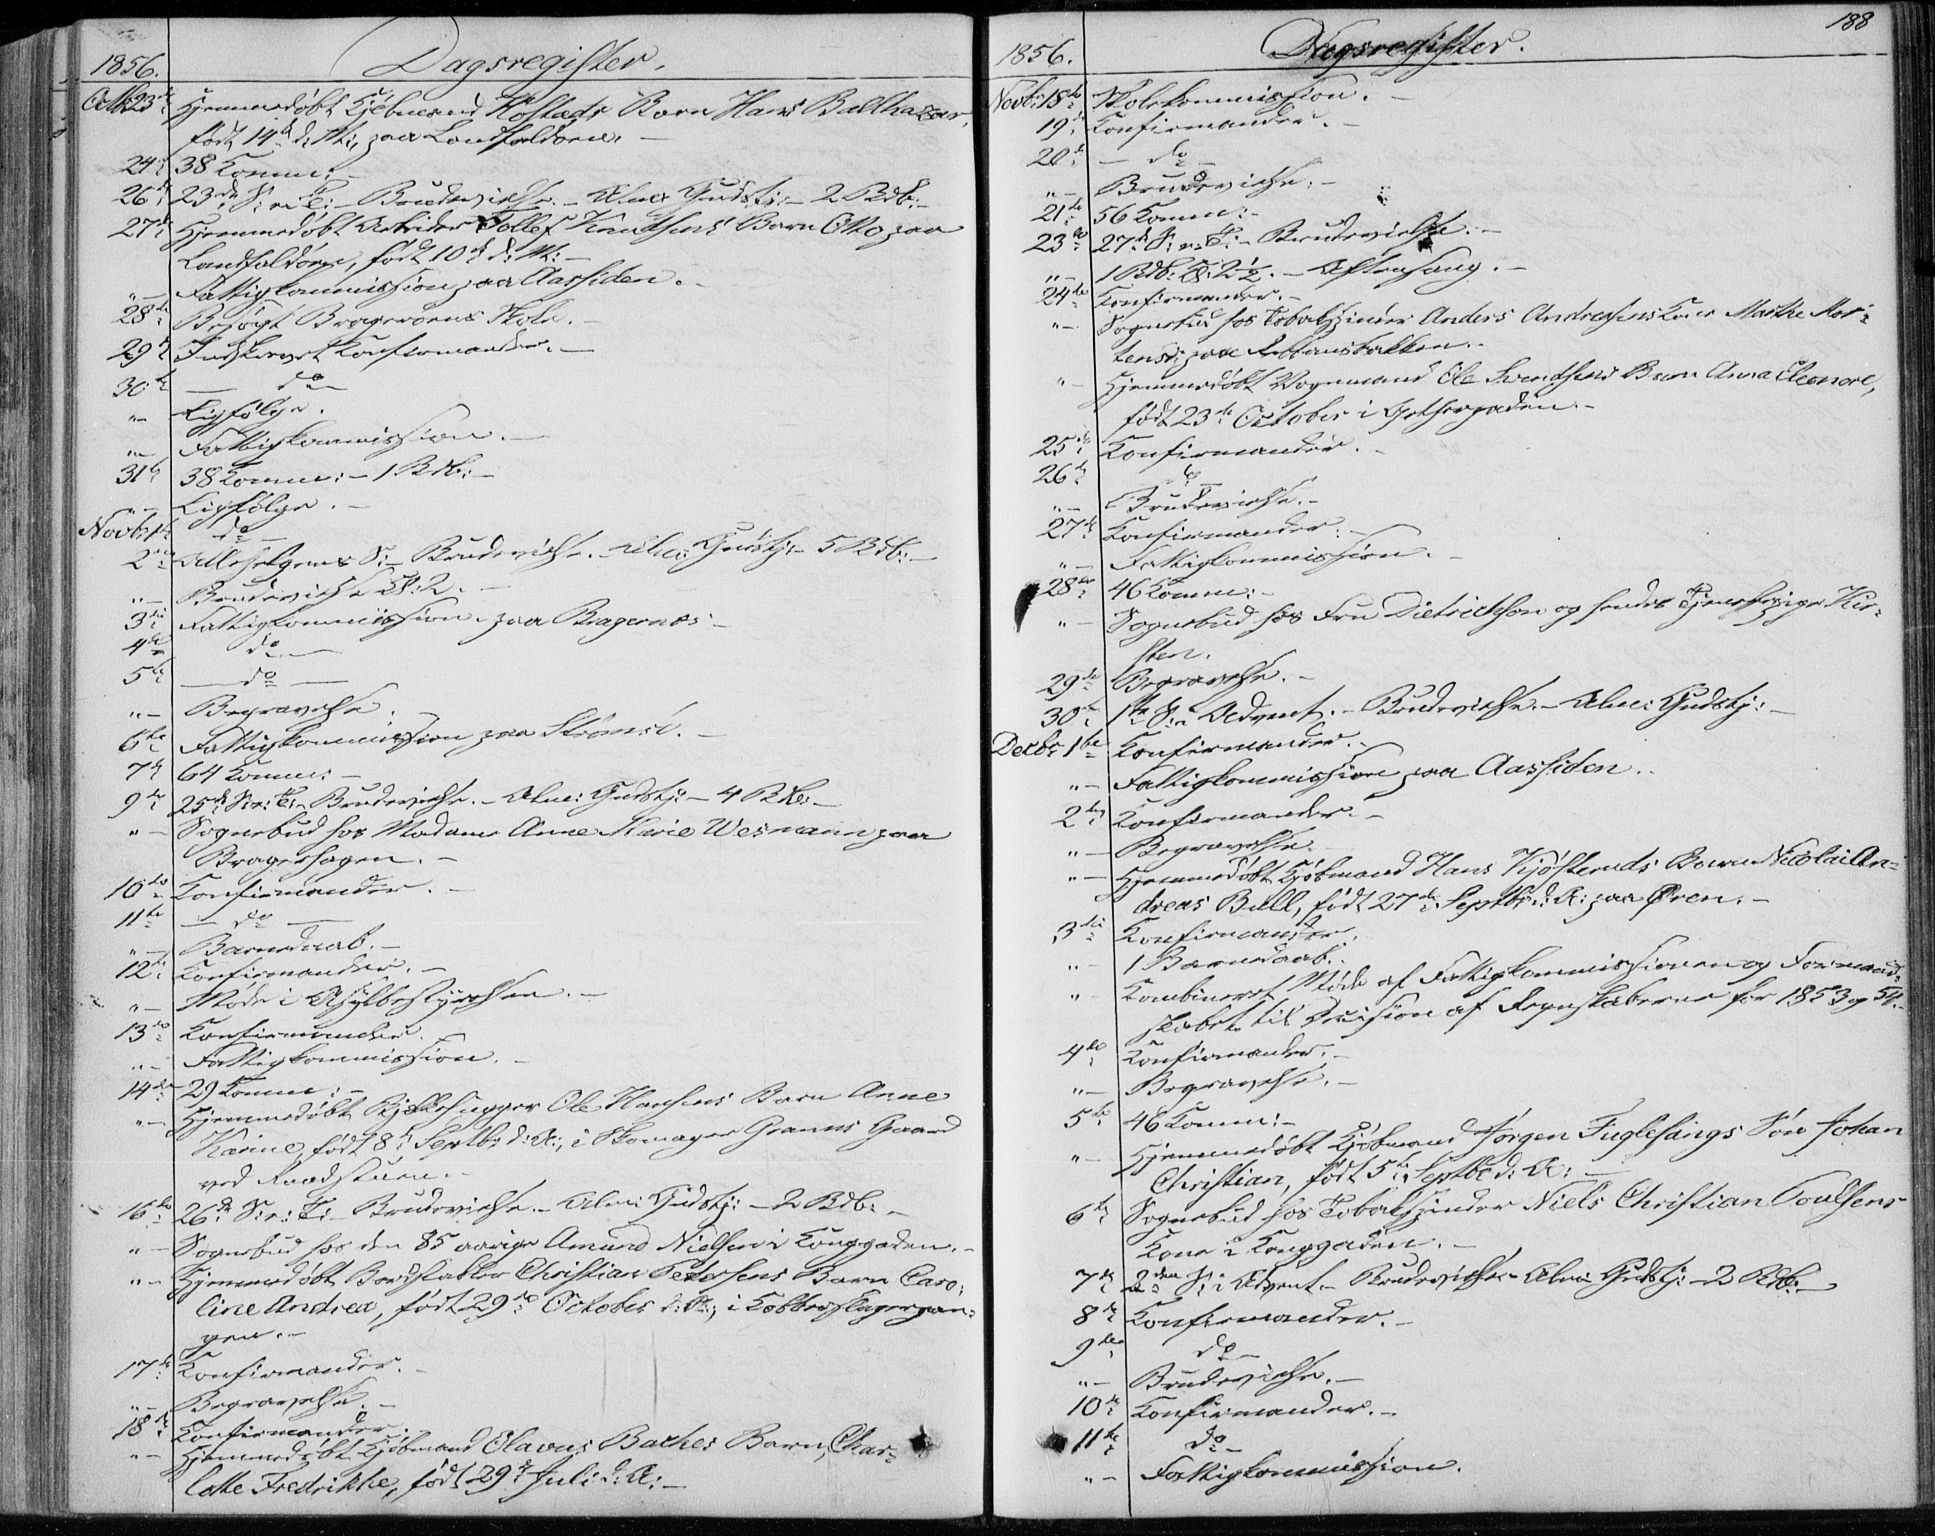 1856. Dagsregister.
Octbr 23de Hjemmedøbt Kjøbmand Kolstads Barn Hans Balthazar,
født 14de d. M:, paa Landfaldøen.
24de 38 Komm:
26de 23de S: e: T: – Brudevielse. – Alm: Gudstj: – 2 Bdb: –
27de Hjemmedøbt Arbeider Tollef Knudsens Barn Otto paa
Landfaldøen, født 10de d: M: –
" – Fattigkommission paa Aassiden. –
28de Besøgt Bragerøens Skole. –
29de Indskrevet Konfirmander. –
30te – do –
" – Ligfølge.
" – Fattigkommission. –
31te 38 Komm: – 1 Bdb: –
" – Ligfølge. –
Novbr 1te do –
2den Allehelgens S: – Brudevielse. – Alm: Gudstj: – 5 Bdb: –
" – Brudevielse Kl: 2. –
3die Fattigkommission paa Bragernæs –
4de do –
5te – do –
" – Begravelse.
6te Fattigkommission paa Strømsø. –
7de 64 Komm: –
9de 25de S: e: T: – Brudevielse. – Alm: Gudstj: – 4 Bdb: –
" – Sognebud hos Madame Anne Marie Wesmann paa
Brageshagen. –
10de Konfirmander. –
11te – do –
" – Barnedaab. –
12te Konfirmander. –
" – Møde i Asylbestyrelsen. –
13de Konfirmander. –
" – Fattigkommission. –
14de 29 Komm: –
" – Hjemmedøbt Bjelkehugger Ole Hansens Barn Anne
Karine, født 8de Septbr d: A:, i Skomager Grans Gaard
ved Raadstuen. –
16de 26de S: e: T: – Brudevielse. – Alm: Gudstj: – 2 Bdb: –
" – Sognebud hos den 85 aarige Amund Nielsen i Konggaden. –
" – Hjemmedøbt Bordstabler Christian Petersens Barn Caro-
line Andrea, født 29de October d: A:, i Kobberslagergan-
gen. –
17de Konfirmander. –
" – Begravelse. –
18de Konfirmander.
" – Hjemmedøbt Kjøbmand Olavus Baches Barn, Char-
lotte Fredrikke, født 29de Juli d: A: –
188
1856. Dagsregister.
Novbr 18de Skolekommission. –
19de Konfirmander. –
20de – do –
" – Brudevielse. –
21de 56 Komm: –
23de 27de S: e: T: – Brudevielse. –
" – 1 Bdb: Kl: 2½. – Aftensang. –
24de Konfirmander. –
" – Sognebud hos Tobakspinder Anders Andersens Kone Marthe Mor-
tensd: paa
" – Hjemmedøbt Vognmand Ole Svendsens Barn Anna Eleonore,
født 23de October i Gothergaden. –
25de Konfirmander. –
26de do –
" – Brudevielse. –
27de Konfirmander. –
" – Fattigkommission. –
28de 46 Komm: –
" – Sognebud hos Fru Dietrichson og hendes Tjenestepige Kir-
sten.
29de Begravelse. –
30te 1ste S: i Advent. – Brudevielse. – Alm: Gudstj: –
Decbr 1ste Konfirmander. –
" – Fattigkommission paa Aassiden. –
2den Konfirmander. –
" – Begravelse. –
" – Hjemmedøbt Kjøbmand Hans Kjøsteruds Barn Nicolai An-
dreas Bull, født 27de Septbr d: A: paa Øren. –
3die Konfirmander.
" – 1 Barnedaab. –
" – Kombineret Møde af Fattigkommissionen og Formand-
skabet til Decision af Regnskaberne for 1853 og 54. –
4de Konfirmander. –
" – Begravelse. –
5te 46 Komm: –
" – Hjemmedøbt Kjøbmand Jørgen Fuglesangs Søn Johan
Christian, født 5te Septbr d: A: –
6te Sognebud hos Tobakspinder Niels Christian Poulsens
Kone i Konggaden. –
7de 2den S: i Advent. – Brudevielse – Alm: Gudstj: – 2 Bdb: –
8de Konfirmander. –
9de do –
" – Brudevielse. –
10de Konfirmander. –
11te do –
" – Fattigkommission.